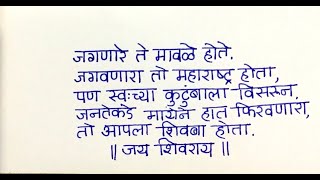 जगणारे ते मावळे होते.
जगवणारा तो महाराष्ट्र होता,
पण स्वःच्या कुटुंबाला विसरून.
जनतेकडे मायेन हात फिरवणारा,
तो आपला शिवबा होता.
|| जय शिवराय ||